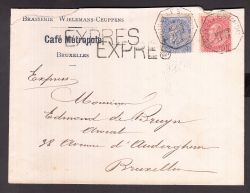 BRASSERIE WIELEMANS-CEUPPENS
Café Métropole
BRUXELLES
EXPRES
EXPRE
Express
Monsieur
Edmond de Bruyn
Avocat
38 Avenue d'Auderghem
Bruxelles